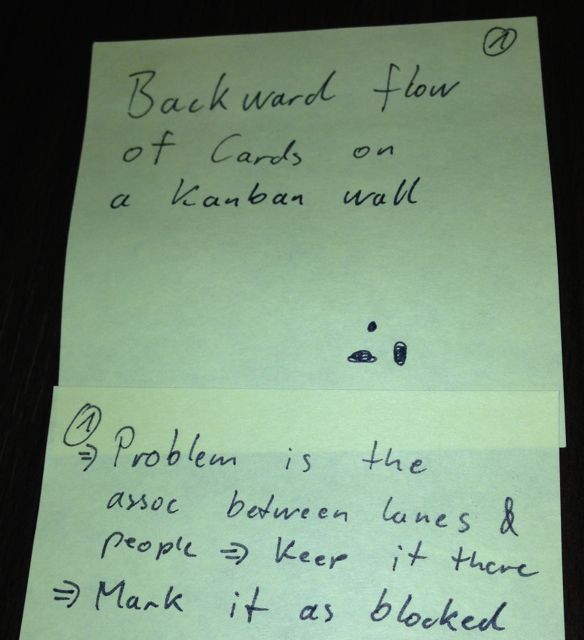 1
Backward flow
of Cards on
a Kanban wall
1
⇒ Problem is the
assoc between lanes &
people ⇒ Keep it there
⇒ Mark it as blocked